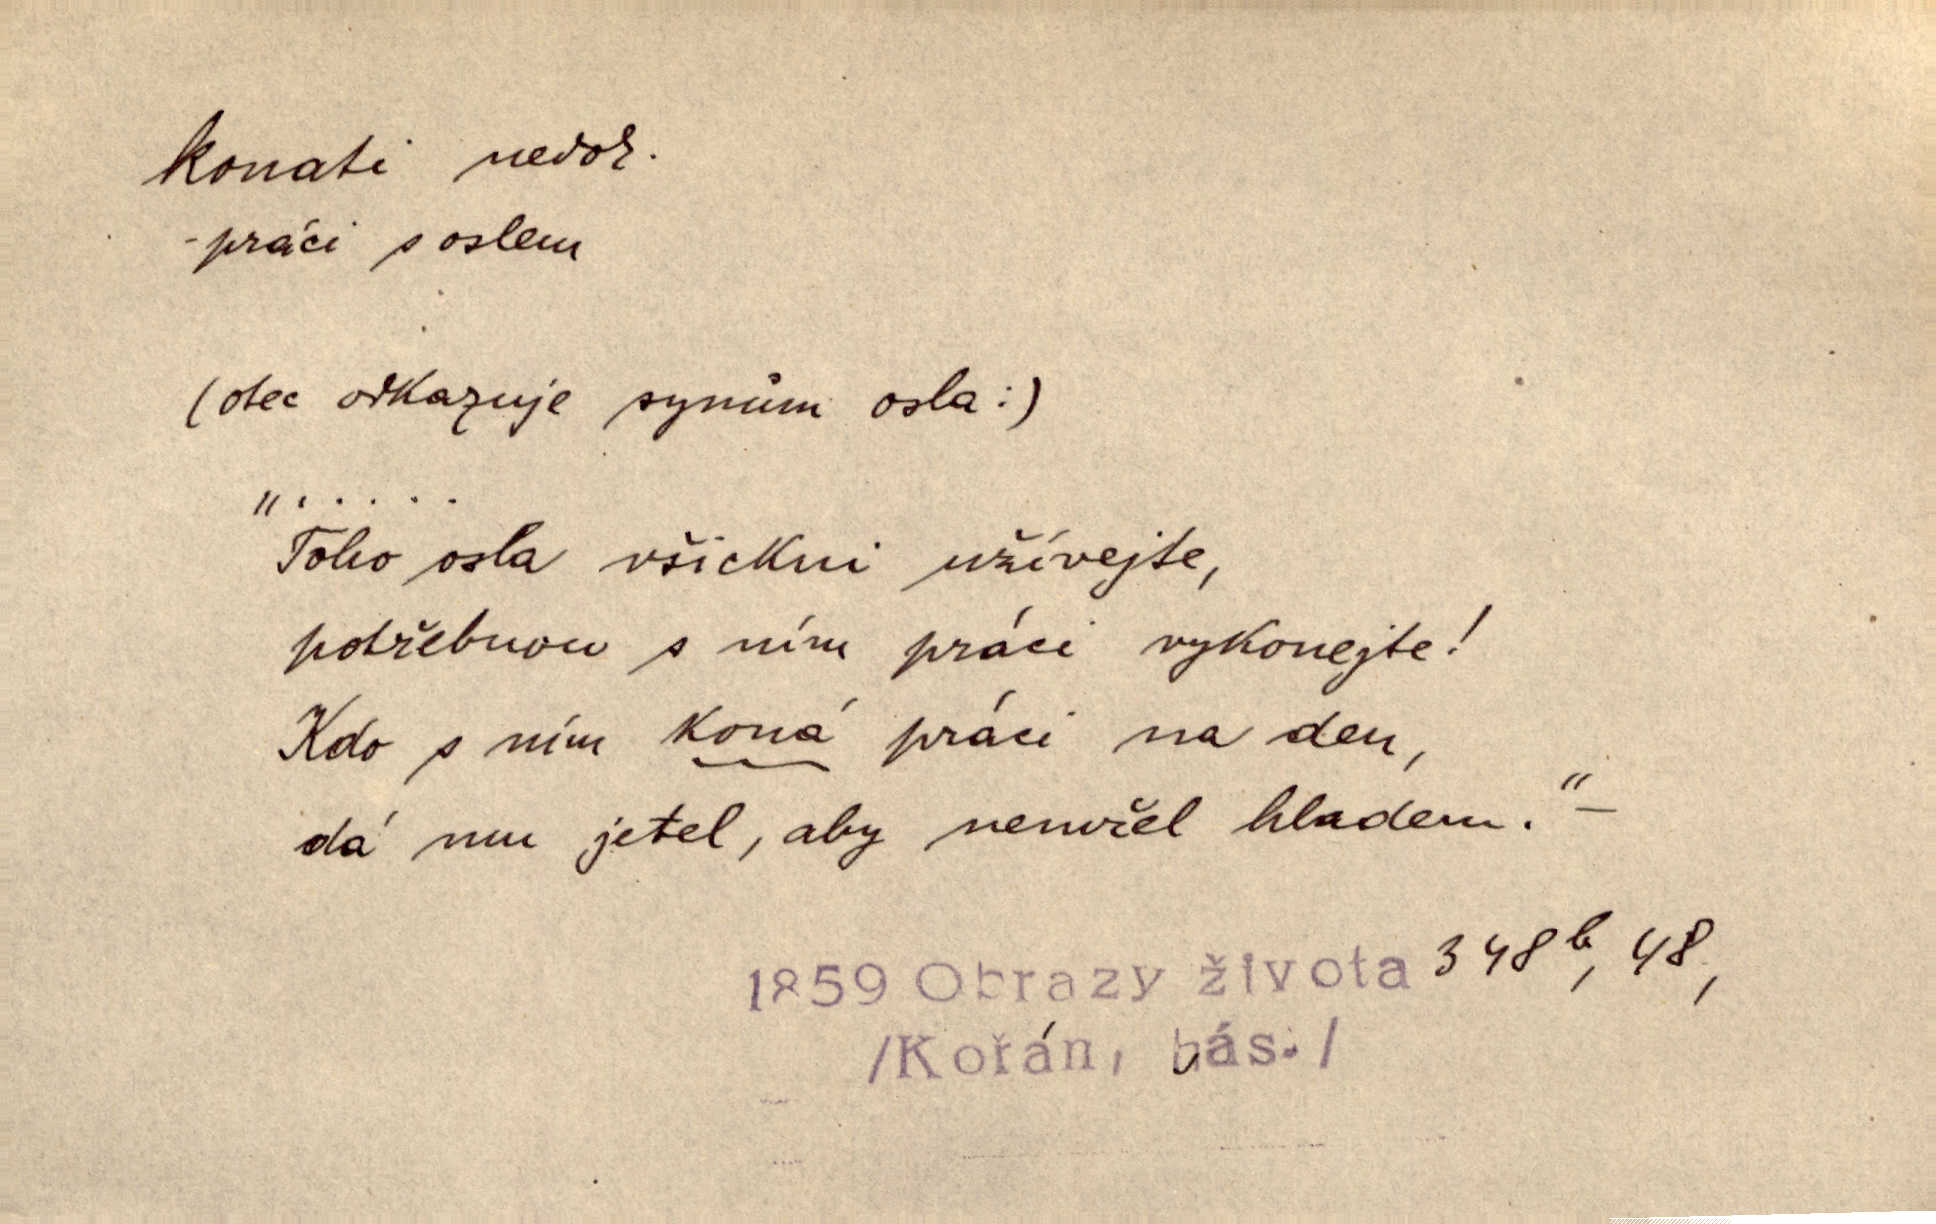 konati nedok.
-práci s oslem
(otec odkazuje synům osla:)
„.....
Toho osla všickni užívejte,
potřebnou s ním práci vykonejte!
Kdo s ním koná práci na den,
dá mu jetel, aby nemřel hladem.“–
1859 Obrazy života 348b, 48,
/Kořán, bás./